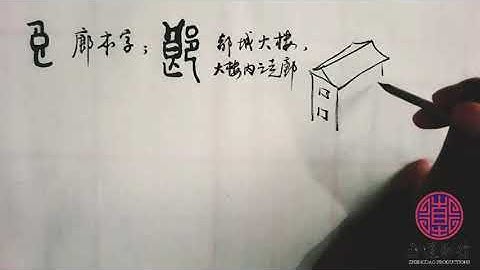 廊本字；
城大楼，
大楼内之走廊
ZHENGDAO PRODUCTIONS